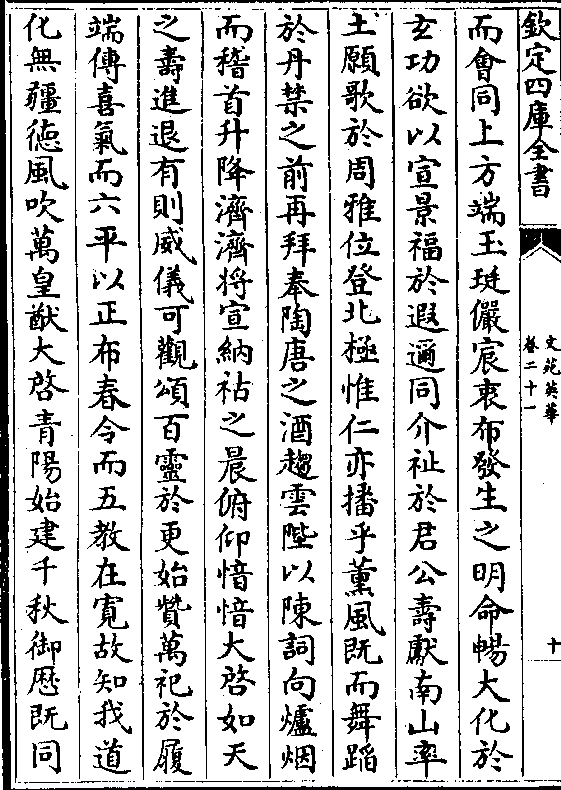 欽定四庫全書
文苑英華
卷二十一
十
而會同上方端玉珽儼宸衷布發生之明命暢大化於
玄功欲以宣景福於遐邇同介祉於君公壽獻南山率
土願歌於周雅位登北極惟仁亦播乎薰風既而舞蹈
於丹禁之前再拜奉陶唐之酒趨雲陛以陳詞向爐烟
而稽首升降濟濟將宣納祜之晨俯仰愔愔大啓如天
之壽進退有則威儀可觀頌百靈於更始贊萬祀於履
端傳喜氣而六平以正布春令而五教在寛故知我道
化無疆德風吹萬皇猷大啓青陽始建千秋御厯既同